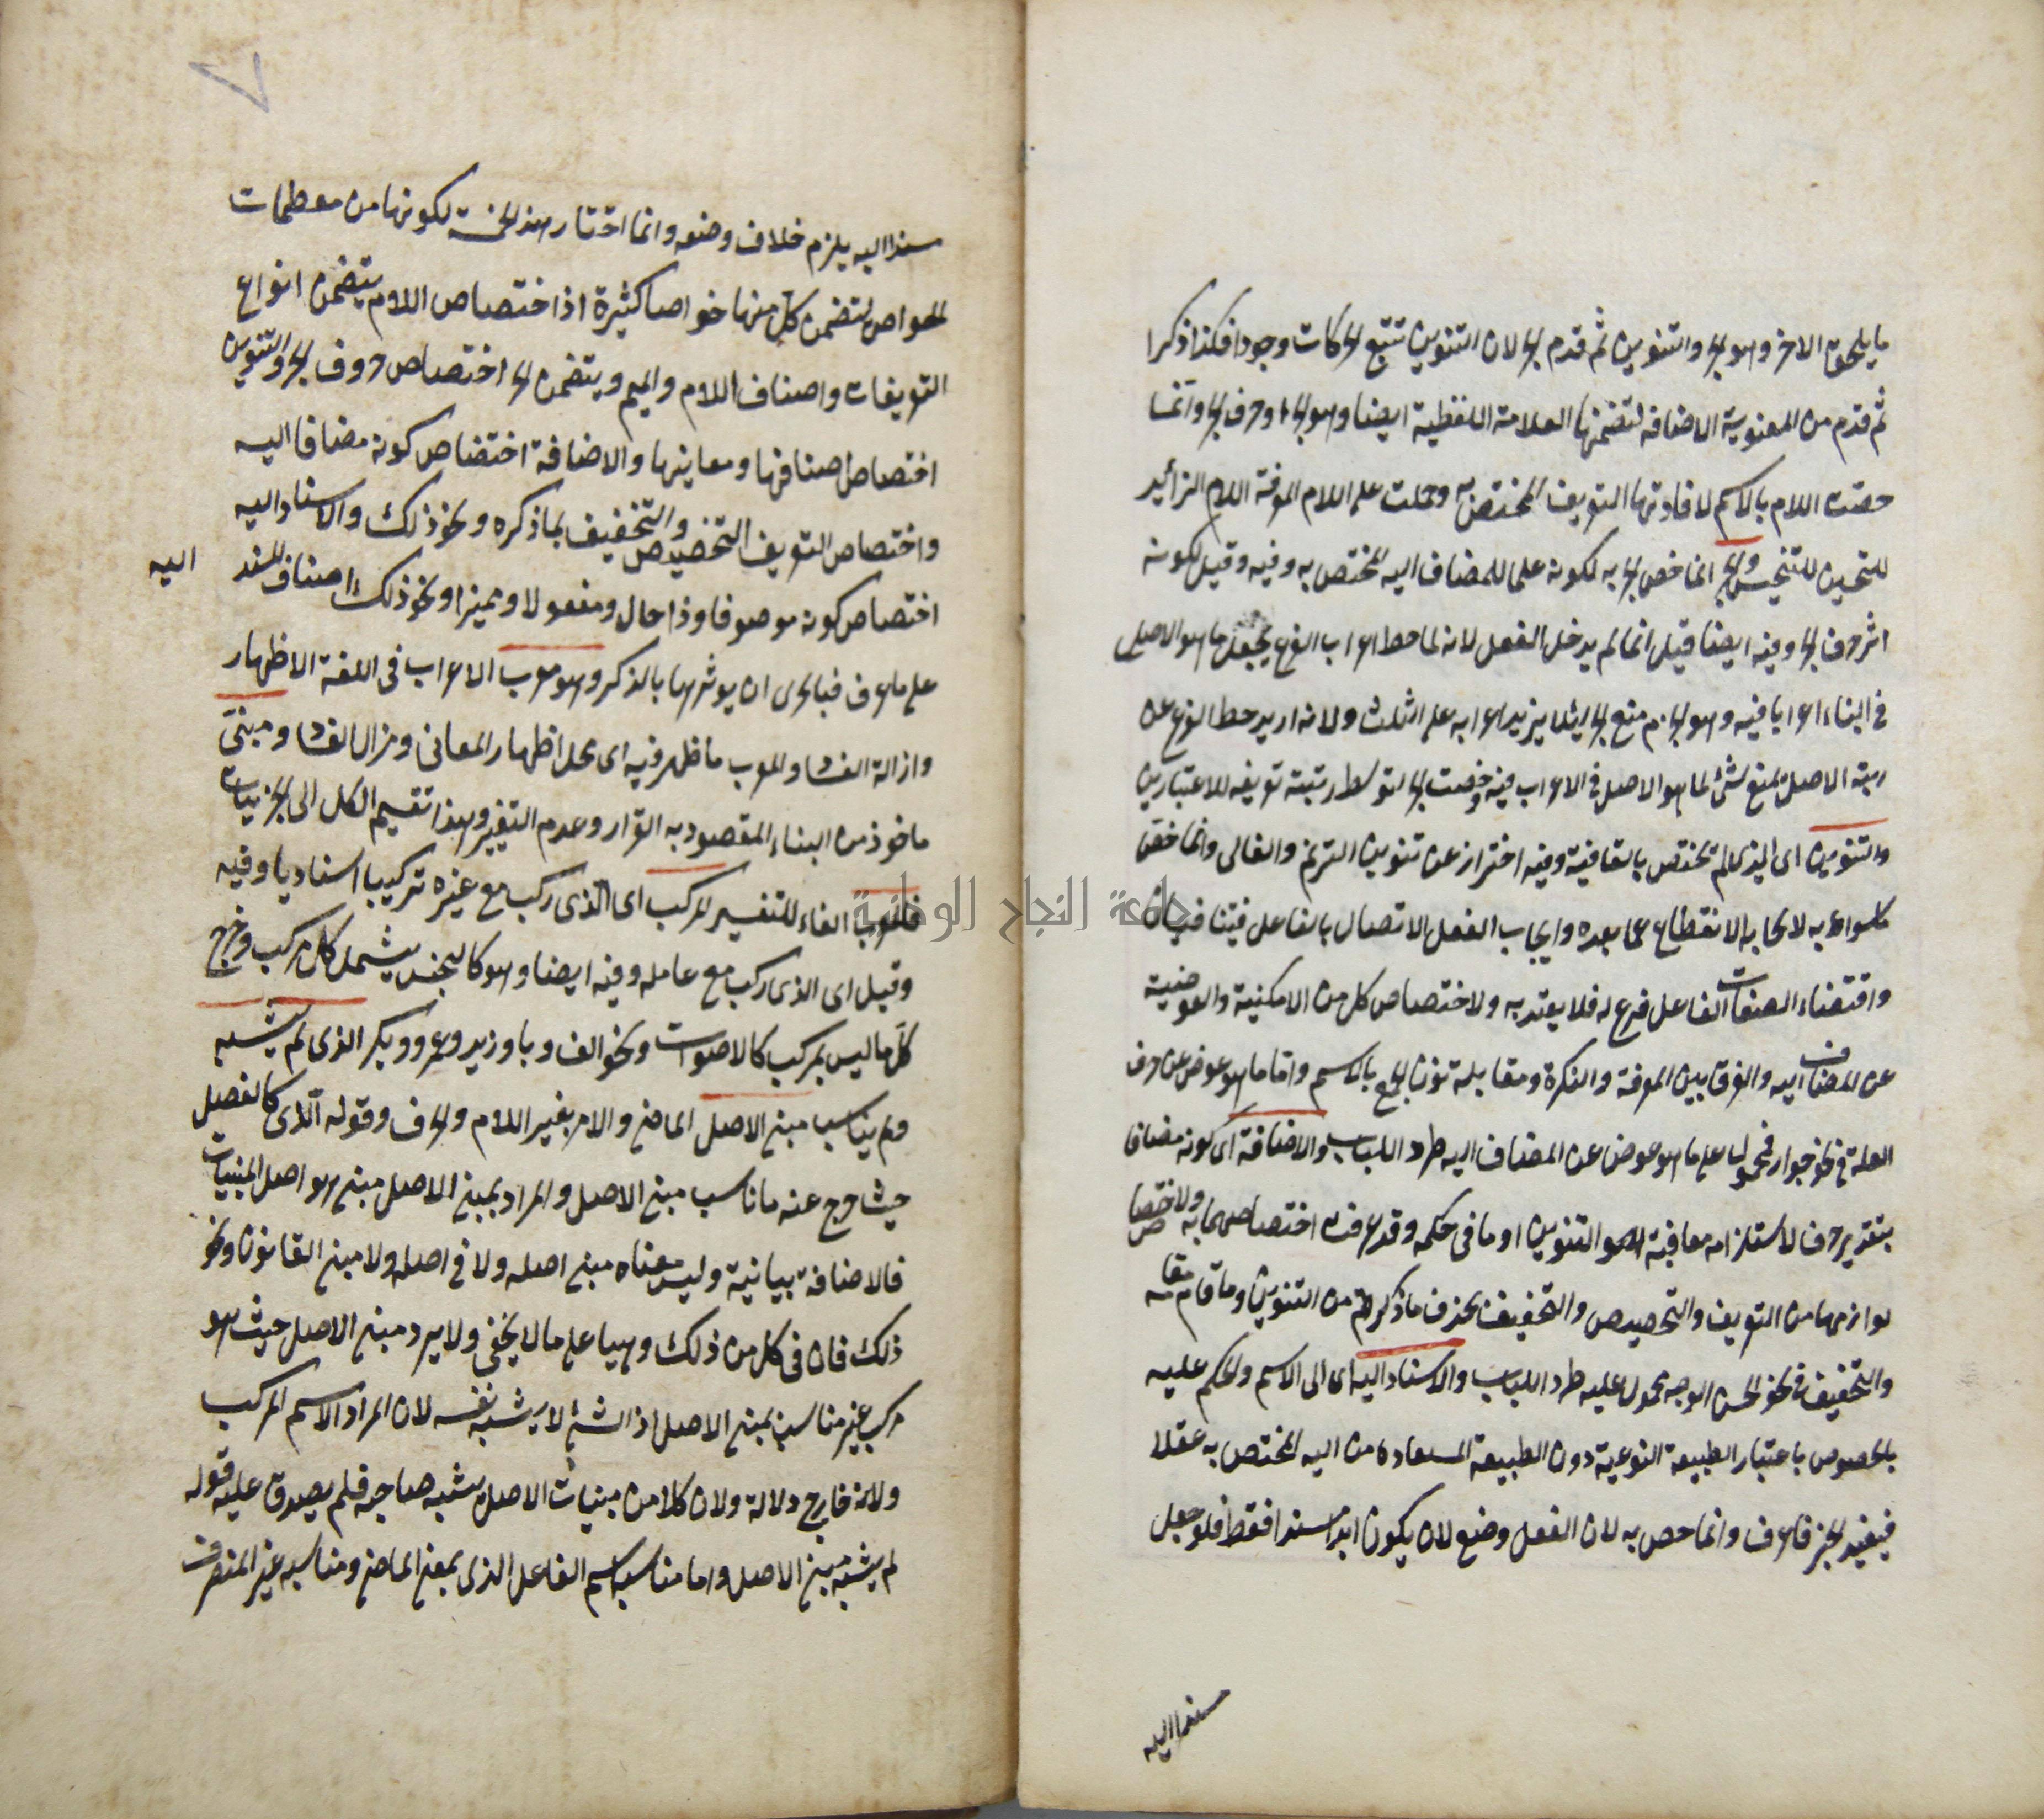 ما يلحق الاخر وهو الجر والتنوين ثم قدم الجر لان التنوين تتبع الحركات وجودا فكذا ذكرا
ثم قدم من المعنوية الاضافه لتضمنها العلامة اللفظية ايضا وهو الجر وحرف الجر وانما
خصت اللام بالاسم لافادتها التعريف المختص به وحملت على اللام المعرفة اللام الزائد
للتحسين والجر انما خص الجر به لكونه علما للمضاف اليه المختص به وفيه وقيل لكونه
اثر حرف الجر وفيه ايضا قيل انما لم يدخل الفعل لانه لما حط اعراب الفرع بجعل ما هو الاصل
في البناء اعرابا فيه وهو الجزم منع الجر لئلا يزيد اعرابه على الثلث ولانه اريد حط الفرع عن
رتبة الاصل بمنع شئ لما هو الاصل في الاعراب فيه وخصت الجر لتوسط رتبته تعريفه للاعتبارين
والتنوين اى الذى لم تختص بالقافية وفيه احتراز عن تنوين الترنم والغالى وانما خص
ما سواهما به لايجابه الانقطاع عما بعده وايجاب الفعل الاتصال بالفاعل فيتنافيان
واقتضاء الصفات الفاعل فرع له فلا يعتد به ولاختصاص كل من الامكنية والعوضية
عن المضاف اليه والفرق بين المعرفة والنكرة ومقابلة نون الجمع بالاسم واما ما هو عوض عن حرف
العلة في نحو جوار فمحمول على ما هو عوض عن المضاف اليه طرد اللباب والاضافة اى كونه مضافا
بتقدير حرف لاستلزامه معاقبة التنوين او ما في حكمه وقد عرفت اختصاصهما به ولاختصاص
لوازمها من التعريف والتخصيص والتخفيف بحذف ما ذكر ثم من التنوين وما قام مقامه
والتخفيف في نحو الحسن الوجه محمول عليه طرد اللباب والاسناد اليه اى الى الاسم والحكم عليه
بالخصوص باعتبار الطبيعة النوعية دون الطبيعة المستفادة من اليه المختص به عقلا
فيفيد الجز فاعرف وانما خص به لان الفعل وضع لان يكون ابدا مسندا فقط فلو جعل
مسندا اليه
مسندا اليه يلزم خلاف وضعه وانما اختار هذه الخمسة لكونها من معظمات
الخواص لتضمن كل منها خواصا كثيرة اذ اختصاص اللام يتضمن انواع
التعريفات واصناف اللام والميم ويتضمن الجر اختصاص حروف الجر والتنوين
اختصاص اصنافها ومعاينها والاضافة اختصاص كونه مضافا اليه
واختصاص التعريف والتخصيص والتخفيف بما ذكره ونحو ذلك والاسناد اليه
اختصاص كونه موصوفا وذا حال ومفعولا ومميزا ونحو ذلك اصناف المسند
اليه
على ما عرف فبالحرى ان يوثرها بالذكر وهو معرب الاعراب فى اللغة الاظهار
وازالة الفساد والمعرب ما ظهر فيه اى محل اظهار المعانى ومزال الفساد ومبنى
ماخوذ من البناء المقصود به القرار وعدم التغير وهذا تقسيم الكل الى الجزئيات
فالمعرب الفاء للتفسير المركب اى الذى ركب مع غيره تركيبا اسناديا وفيه
وقيل اى الذى ركب مع عامله وفيه ايضا وهو كالجنس يشمل كل مركب وخرج
كل ما ليس بمركب كالاصوات ونحو الف وبا وزيد وعمرو وبكر الذى لم يشبه
ولم يناسب مبنى الاصل الماضى والامر بغير اللام والحرف وقوله الذى كالفصل
حيث خرج عنه ما ناسب مبنى الاصل والمراد بمبنى الاصل مبنى هو اصل المبنيات
فالاضافة بيانية وليس معناه مبنى اصله ولا في اصله ولا مبنى القانون ونحو
ذلك فان فى كل من ذلك وهيا على ما لا يخفى ولا يرد مبنى الاصل حيث هو
مركب غير مناسب بمبنى الاصل اذ الشئ لا يشبه نفسه لان المراد الاسم المركب
ولانه خارج دلالة ولان كلا من مبنيات الاصل يشبه صاحبه فلم يصدق عليه قوله
لم يشبه مبنى الاصل واما مناسبة اسم الفاعل الذى بمعنى الماضى ومناسبه غير المنصرف
جامعة النجاح الوطنية